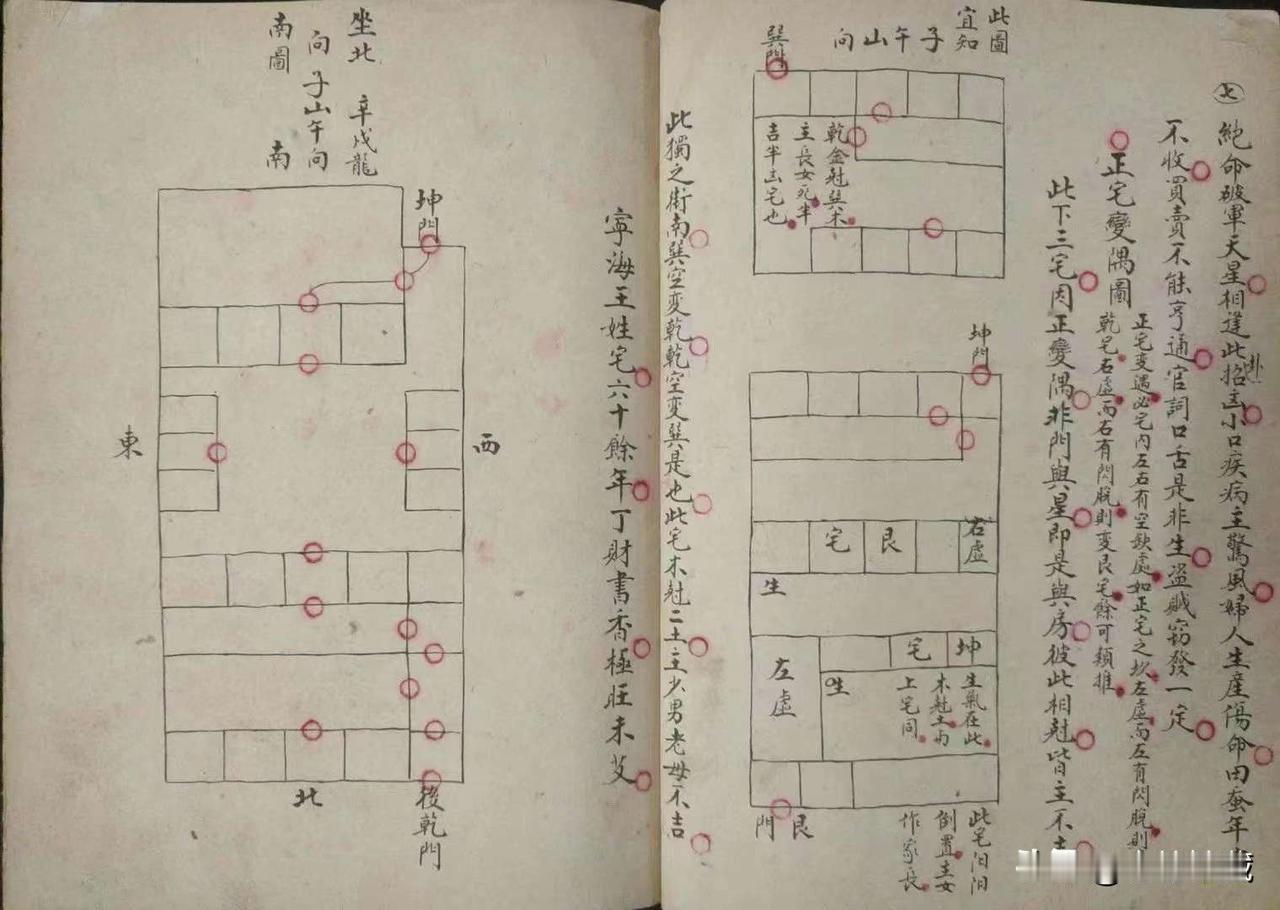 ㊆絕命破軍天星相逢此招凶小口疾病主驚風婦人生產傷命田蚕年
卦
不收買賣不能亨通官詞口舌是非生盜賊竊發一定
正宅變隅圖
正宅变遇必宅内左右有空缺處如正宅之坎左虛而左有閃脫則
乾宅右虛而右有閃脫則变艮宅餘可類推
此下三宅因正變隅非門與星即是與房彼此相尅皆主不吉
此圖
宜知
子午山向
巽門
乾金尅巽木
主長女死半
吉半凶宅也
坤門
右虛
艮
宅
生
坤
宅
左虛
生
生氣在此
木尅土内
上宅同
艮門
此宅汨汨
倒置主女
作家長
此獨之衛南巽空变乾乾空变巽是也此宅木尅二土主少男老母不吉
寧海王姓宅六十餘年丁財書香極旺未艾
坐北
向
南圖
辛戌龍
子山午向
南
坤門
東
西
北
後乾門